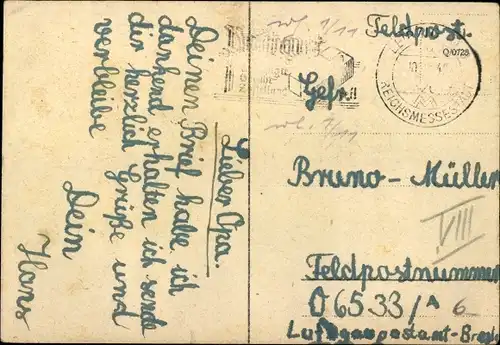 Lieber Opa.
Deinen Brief habe ich
dankend erhalten ich sende
dir herzlich Grüße und
verbleibe
Dein
Hans
Feldpost.
Gefr.
REICHSMESSESTADT
Bruno-Müller
VIII
Feldpostnummer
06533/A 6
Luftgaupostamt-Bresl